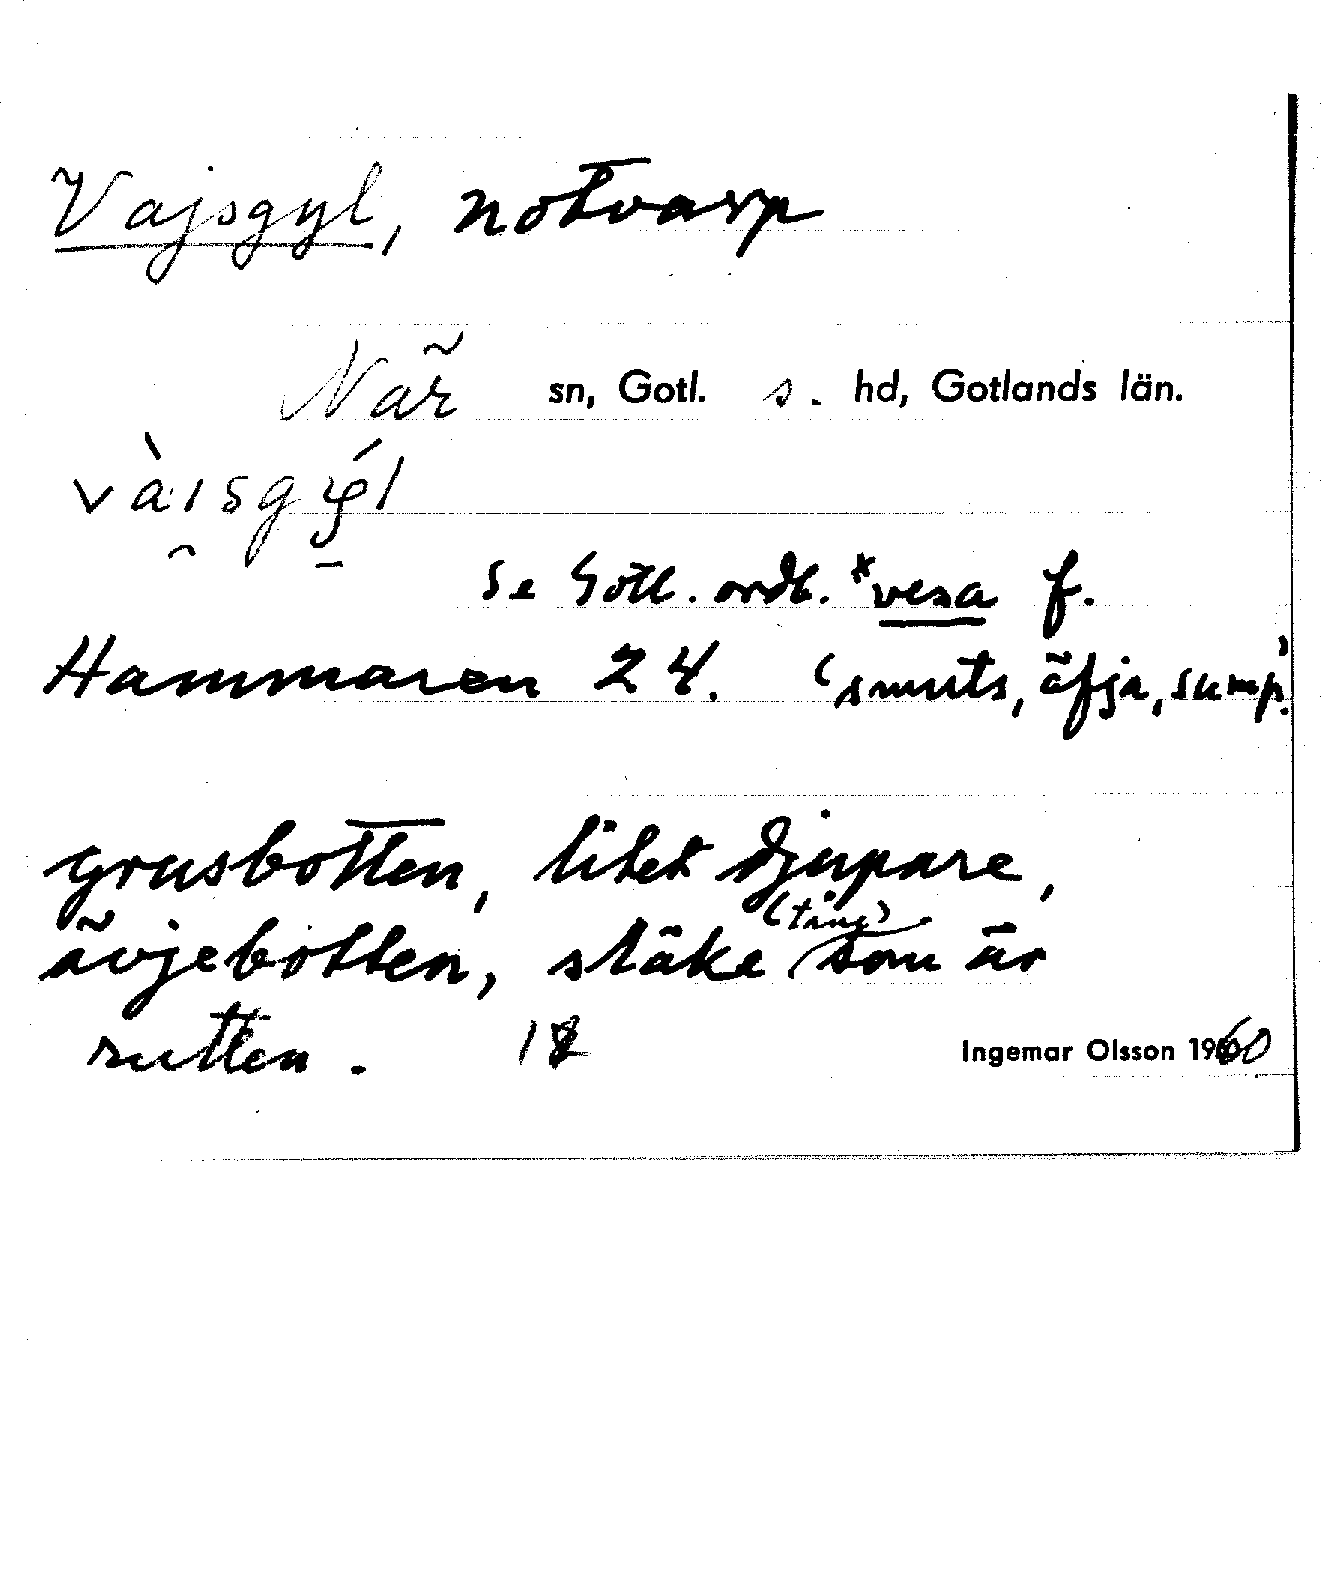 Vajsgyl, notvarp
När sn, Gotl. s. hd, Gotlands län.
vàisgýl
Se Gotl. ordb. *vesa f.
Hammaren 24. ('smuts, äfja, sump'.
grusbotten, litet djupare,
ävjebotten, stäke (tång) som är
rutten. 18
Ingemar Olsson 1960